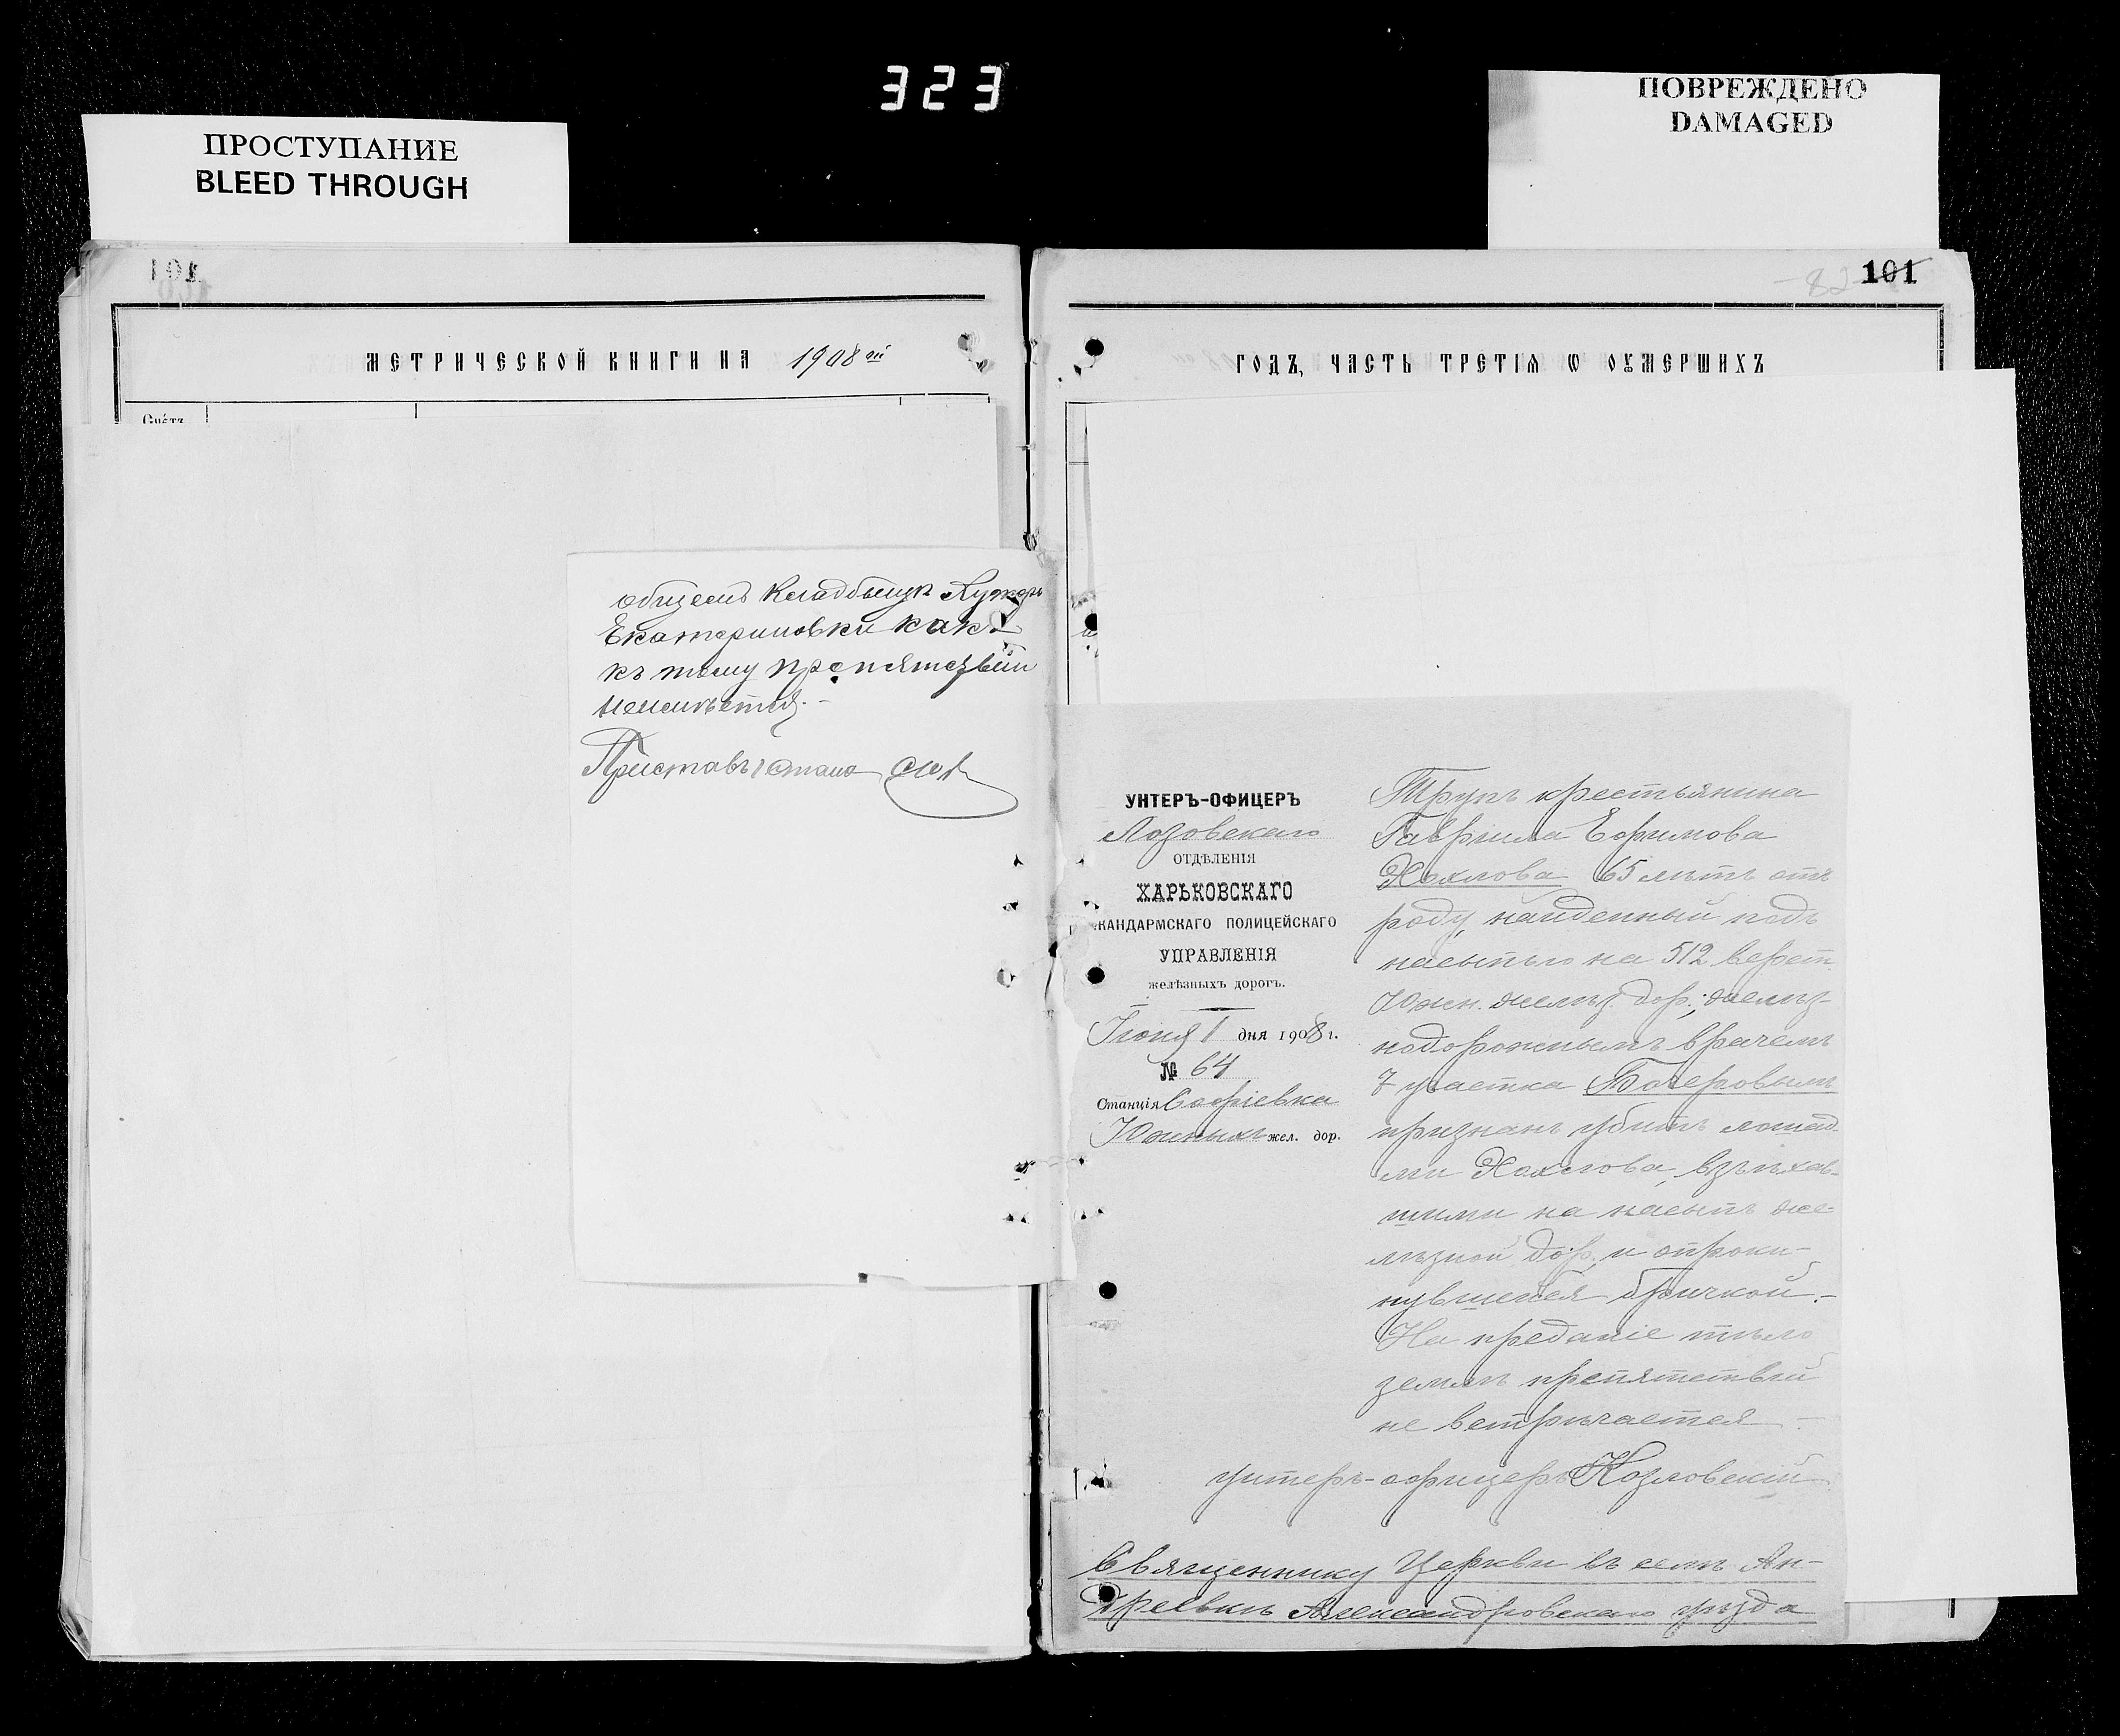 323
ПРОСТУПАНИЕ
BLEED THROUGH
ПОВРЕЖДЕНО
DAMAGED
101
МЕТРИЧЕСКОЙ КНИГИ НА 1908 ой
Счетъ
общемъ кладбищѣ
Екатериновки какъ
къ тому препятствiй
неимѣется.-
Приставъ 1 стана
82
101
ГОДЪ, ЧАСТЬ ТРЕТІѦ Ѡ ОУМЕРШИХЪ
УНТЕРЪ-ОФИЦЕРЪ
Лозовскаго
ОТДѢЛЕНІЯ
ХАРЬКОВСКАГО
ЖАНДАРМСКАГО ПОЛИЦЕЙСКАГО
УПРАВЛЕНІЯ
желѣзныхъ дорогъ.
Іюня 1 дня 1908 г.
№ 64
Станція Софіевка
Южныхъ жел. дор.
Трупъ крестьянина
Гавріила Ефимова
Хохлова 65 лѣтъ отъ
роду, найденный подъ
насыпью на 512 верст
Южн. желѣз. дор.; желѣз-
нодорожнымъ врачемъ
7 участка
признанъ убитъ лошадь-
ми Хохлова, взъѣхав-
шими на насыпь же-
лѣзной дор. и опроки-
нувшейся бричкой.-
На преданіе тѣло
землѣ препятствій
не встрѣчается -
унтеръ-офицеръ Козловскій
Священнику Церкви въ селѣ Ан-
дреевкѣ Александровскаго уѣзда